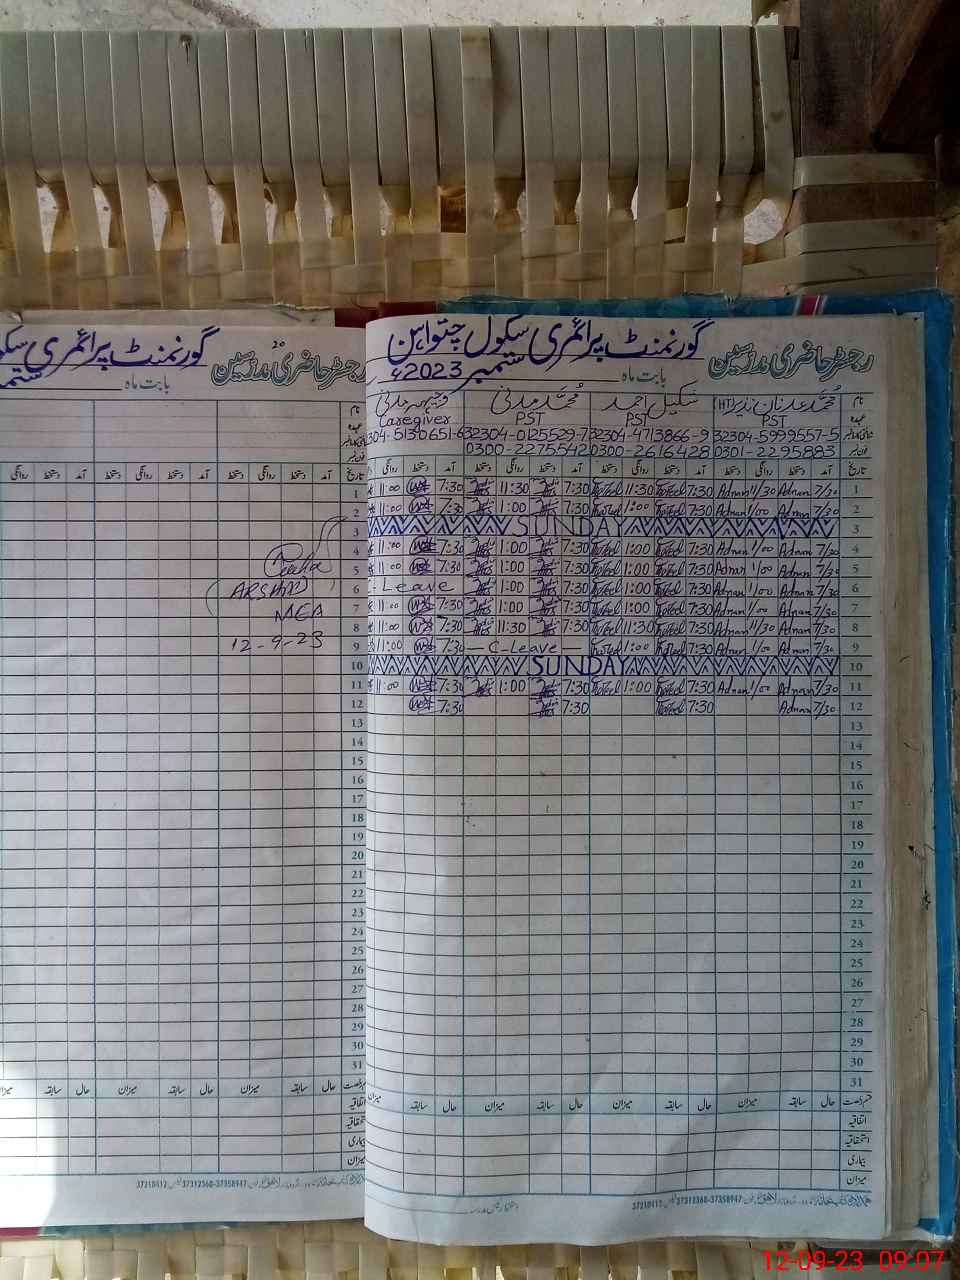 گورنمنٹ پرائمری سکول چتواہن
رجسٹر حاضری مدرسین
بابت ماہ ستمبر 2023ء
نام محمد عدنان نذیر (HT) شکیل احمد محمد مدنی
عہدہ PST PST PST Caregiver
32304-5999557-5 32304-4713866-9 32304-0125529-7 304-5130651-6
0301-2295883 0300-2616428 0300-2275542
تاریخ آمد دستخط روانگی دستخط آمد دستخط روانگی دستخط آمد دستخط روانگی دستخط آمد دستخط روانگی
1 7/30 Adnan 11/30 Adnan 7:30 11:30 7:30 11:30 7:30 11:00
2 7/30 Adnan 1/00 Adnan 7:30 1:00 7:30 1:00 7:30 11:00
3 SUNDAY
4 7/30 Adnan 1/00 Adnan 7:30 1:00 7:30 1:00 7:30 11:00
5 7/30 Adnan 1/00 Adnan 7:30 1:00 7:30 1:00 7:30 11:00
6 7/30 Adnan 1/00 Adnan 7:30 1:00 7:30 1:00 Leave
7 7/30 Adnan 1/00 Adnan 7:30 1:00 7:30 1:00 7:30 11:00
8 7/30 Adnan 11/30 Adnan 7:30 11:30 7:30 11:30 7:30 11:00
9 7/30 Adnan 1/00 Adnan 7:30 1:00 — C-Leave — 7:30 11:00
10 SUNDAY
11 7/30 Adnan 1/00 Adnan 7:30 1:00 7:30 1:00 7:30 11:00
12 7/30 Adnan 7:30 7:30 7:30
13
14
15
16
17
18
19
20
21
22
23
24
25
26
27
28
29
30
31
قسم رخصت حال سابقہ میزان حال سابقہ میزان حال سابقہ میزان حال سابقہ میزان
اتفاقیہ
استحقاقیہ
بیماری
میزان
37310412 37312360-37358947
گورنمنٹ پرائمری سکو
رجسٹر حاضری مدرسین
20
بابت ماہ
نام
عہدہ
تاریخ آمد دستخط روانگی دستخط آمد دستخط روانگی دستخط آمد دستخط روانگی
1
2
3
4
5
6
7
8
9
10
11
12
13
14
15
16
17
18
19
20
21
22
23
24
25
26
27
28
29
30
31
ARSHAD
MEA
12-9-23
حال سابقہ میزان حال سابقہ میزان حال سابقہ میزان
اتفاقیہ
استحقاقیہ
بیماری
میزان
37310412 37312360-37358947
12-09-23 09:07